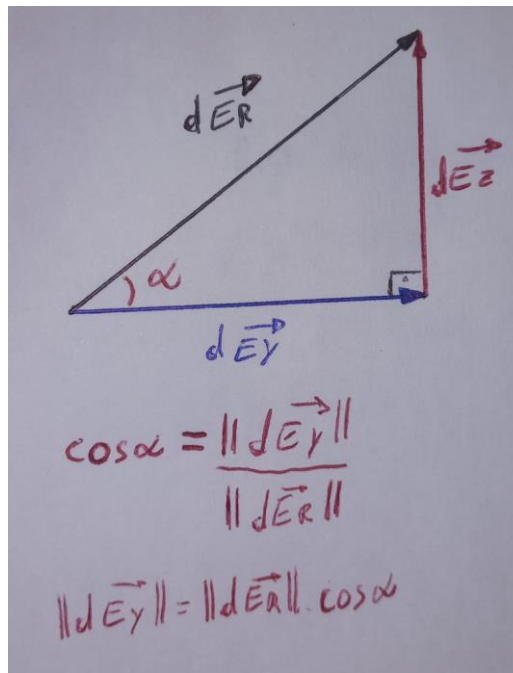 dE⃗R
dE⃗z
α
dE⃗y
cosα = ||dE⃗y|| / ||dE⃗R||
||dE⃗y|| = ||dE⃗R||.cosα